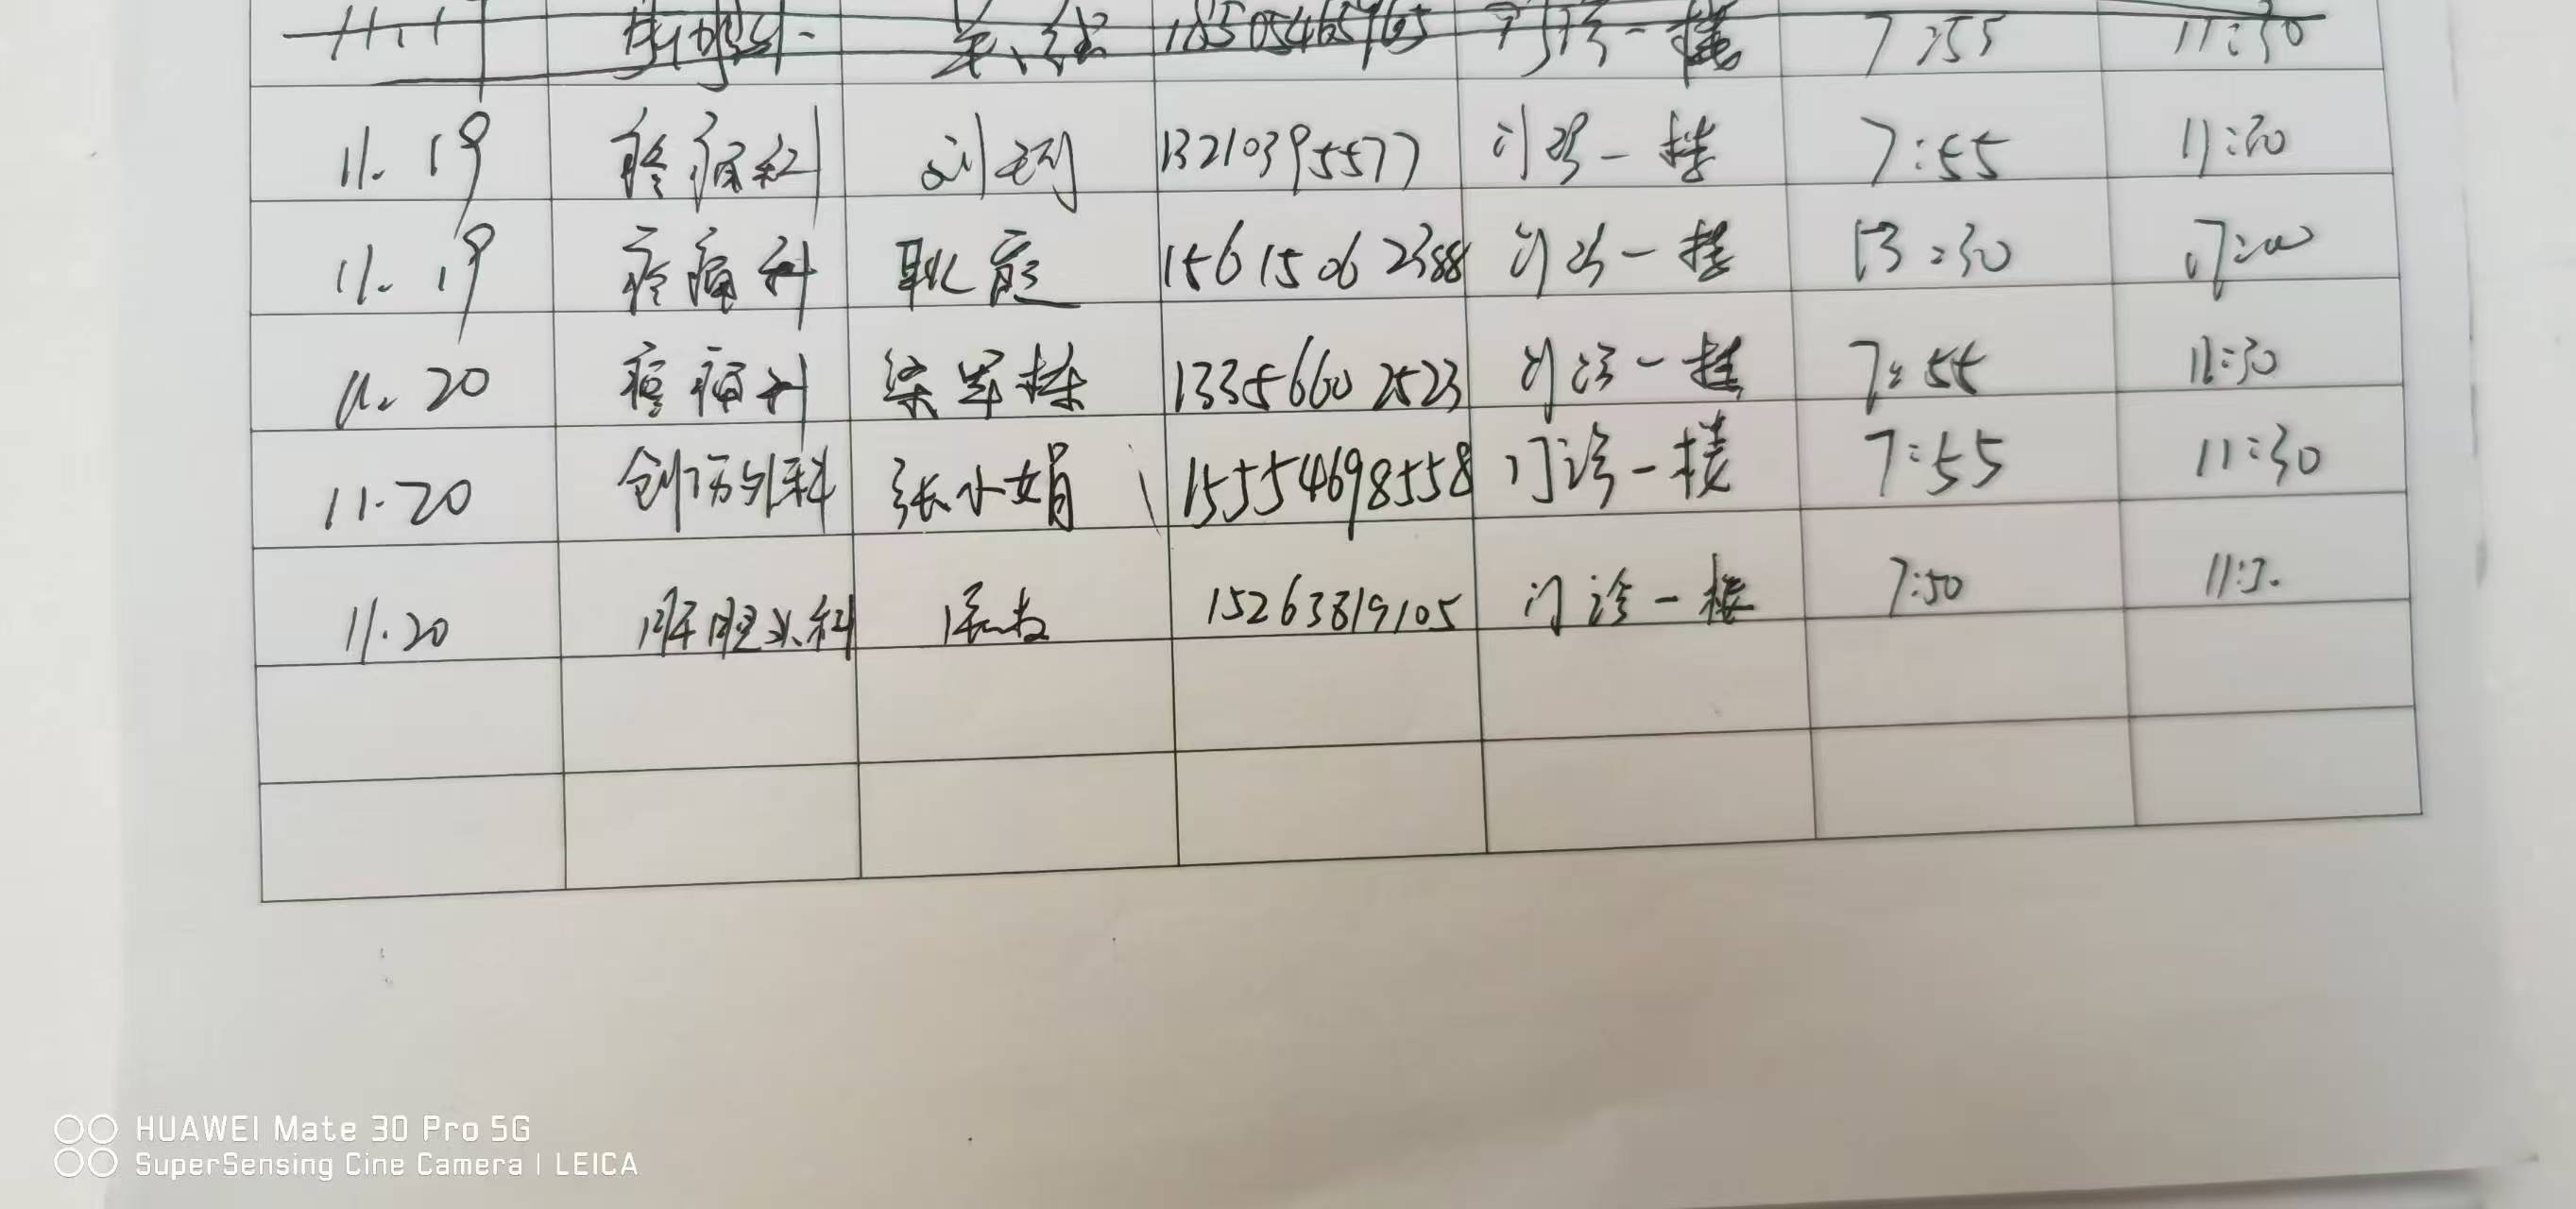 7:55 11:30
11.19 疼痛科 刘 13210395577 门诊一楼 7:55 11:30
11.19 疼痛科 耿 15615062388 门诊一楼 13:30 17:00
11.20 疼痛科 梁军栋 13356602523 门诊一楼 7:55 11:30
11.20 创伤外科 张小娟 15554698558 门诊一楼 7:55 11:30
11.20 肝胆外科 15263819105 门诊一楼 7:50 11:3.
HUAWEI Mate 30 Pro 5G
SuperSensing Cine Camera | LEICA